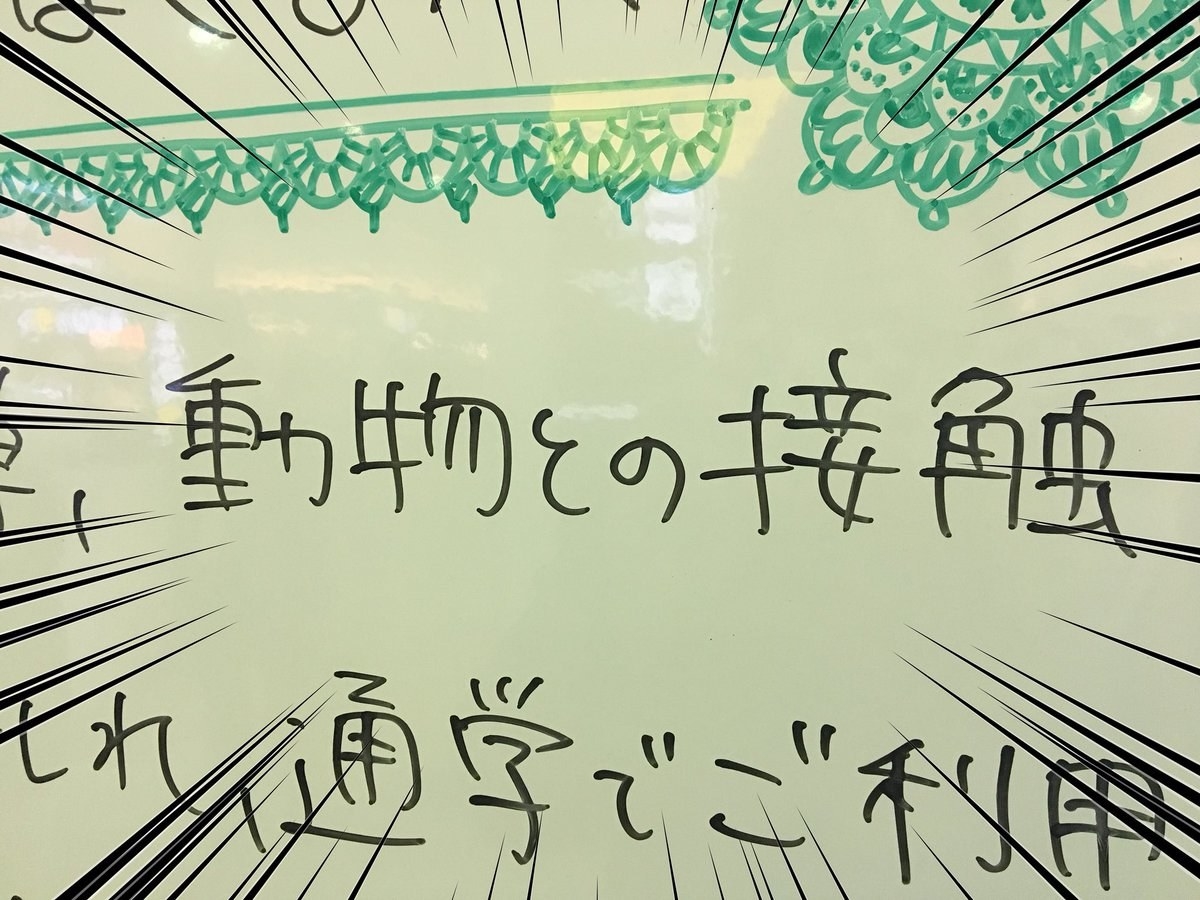 動物との接触
しれ、通学でご利用